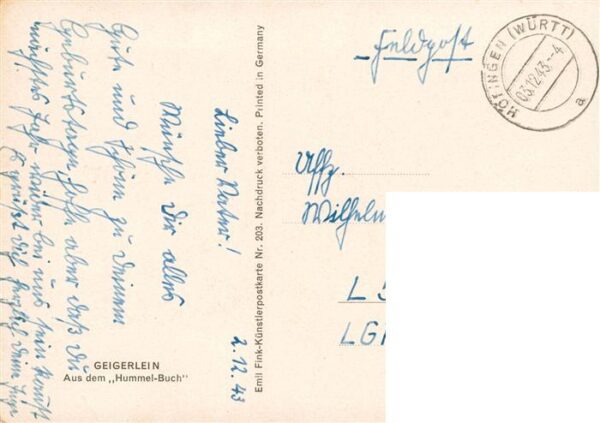 Lieber Vater!
Wünsche Dir alles
Gute und Schöne zu Deinem
Geburtstage, hoffe aber daß Du
nächstes Jahr wieder bei uns sein kannst
Es grüßt Dich herzlich Deine
2.12.43
GEIGERLEIN
Aus dem „Hummel-Buch"
Emil Fink-Künstlerpostkarte Nr. 203. Nachdruck verboten. Printed in Germany
Feldpost
HÖFINGEN (WÜRTT)
03.12.43.-4
a
Uffz.
Wilhelm
L
LG